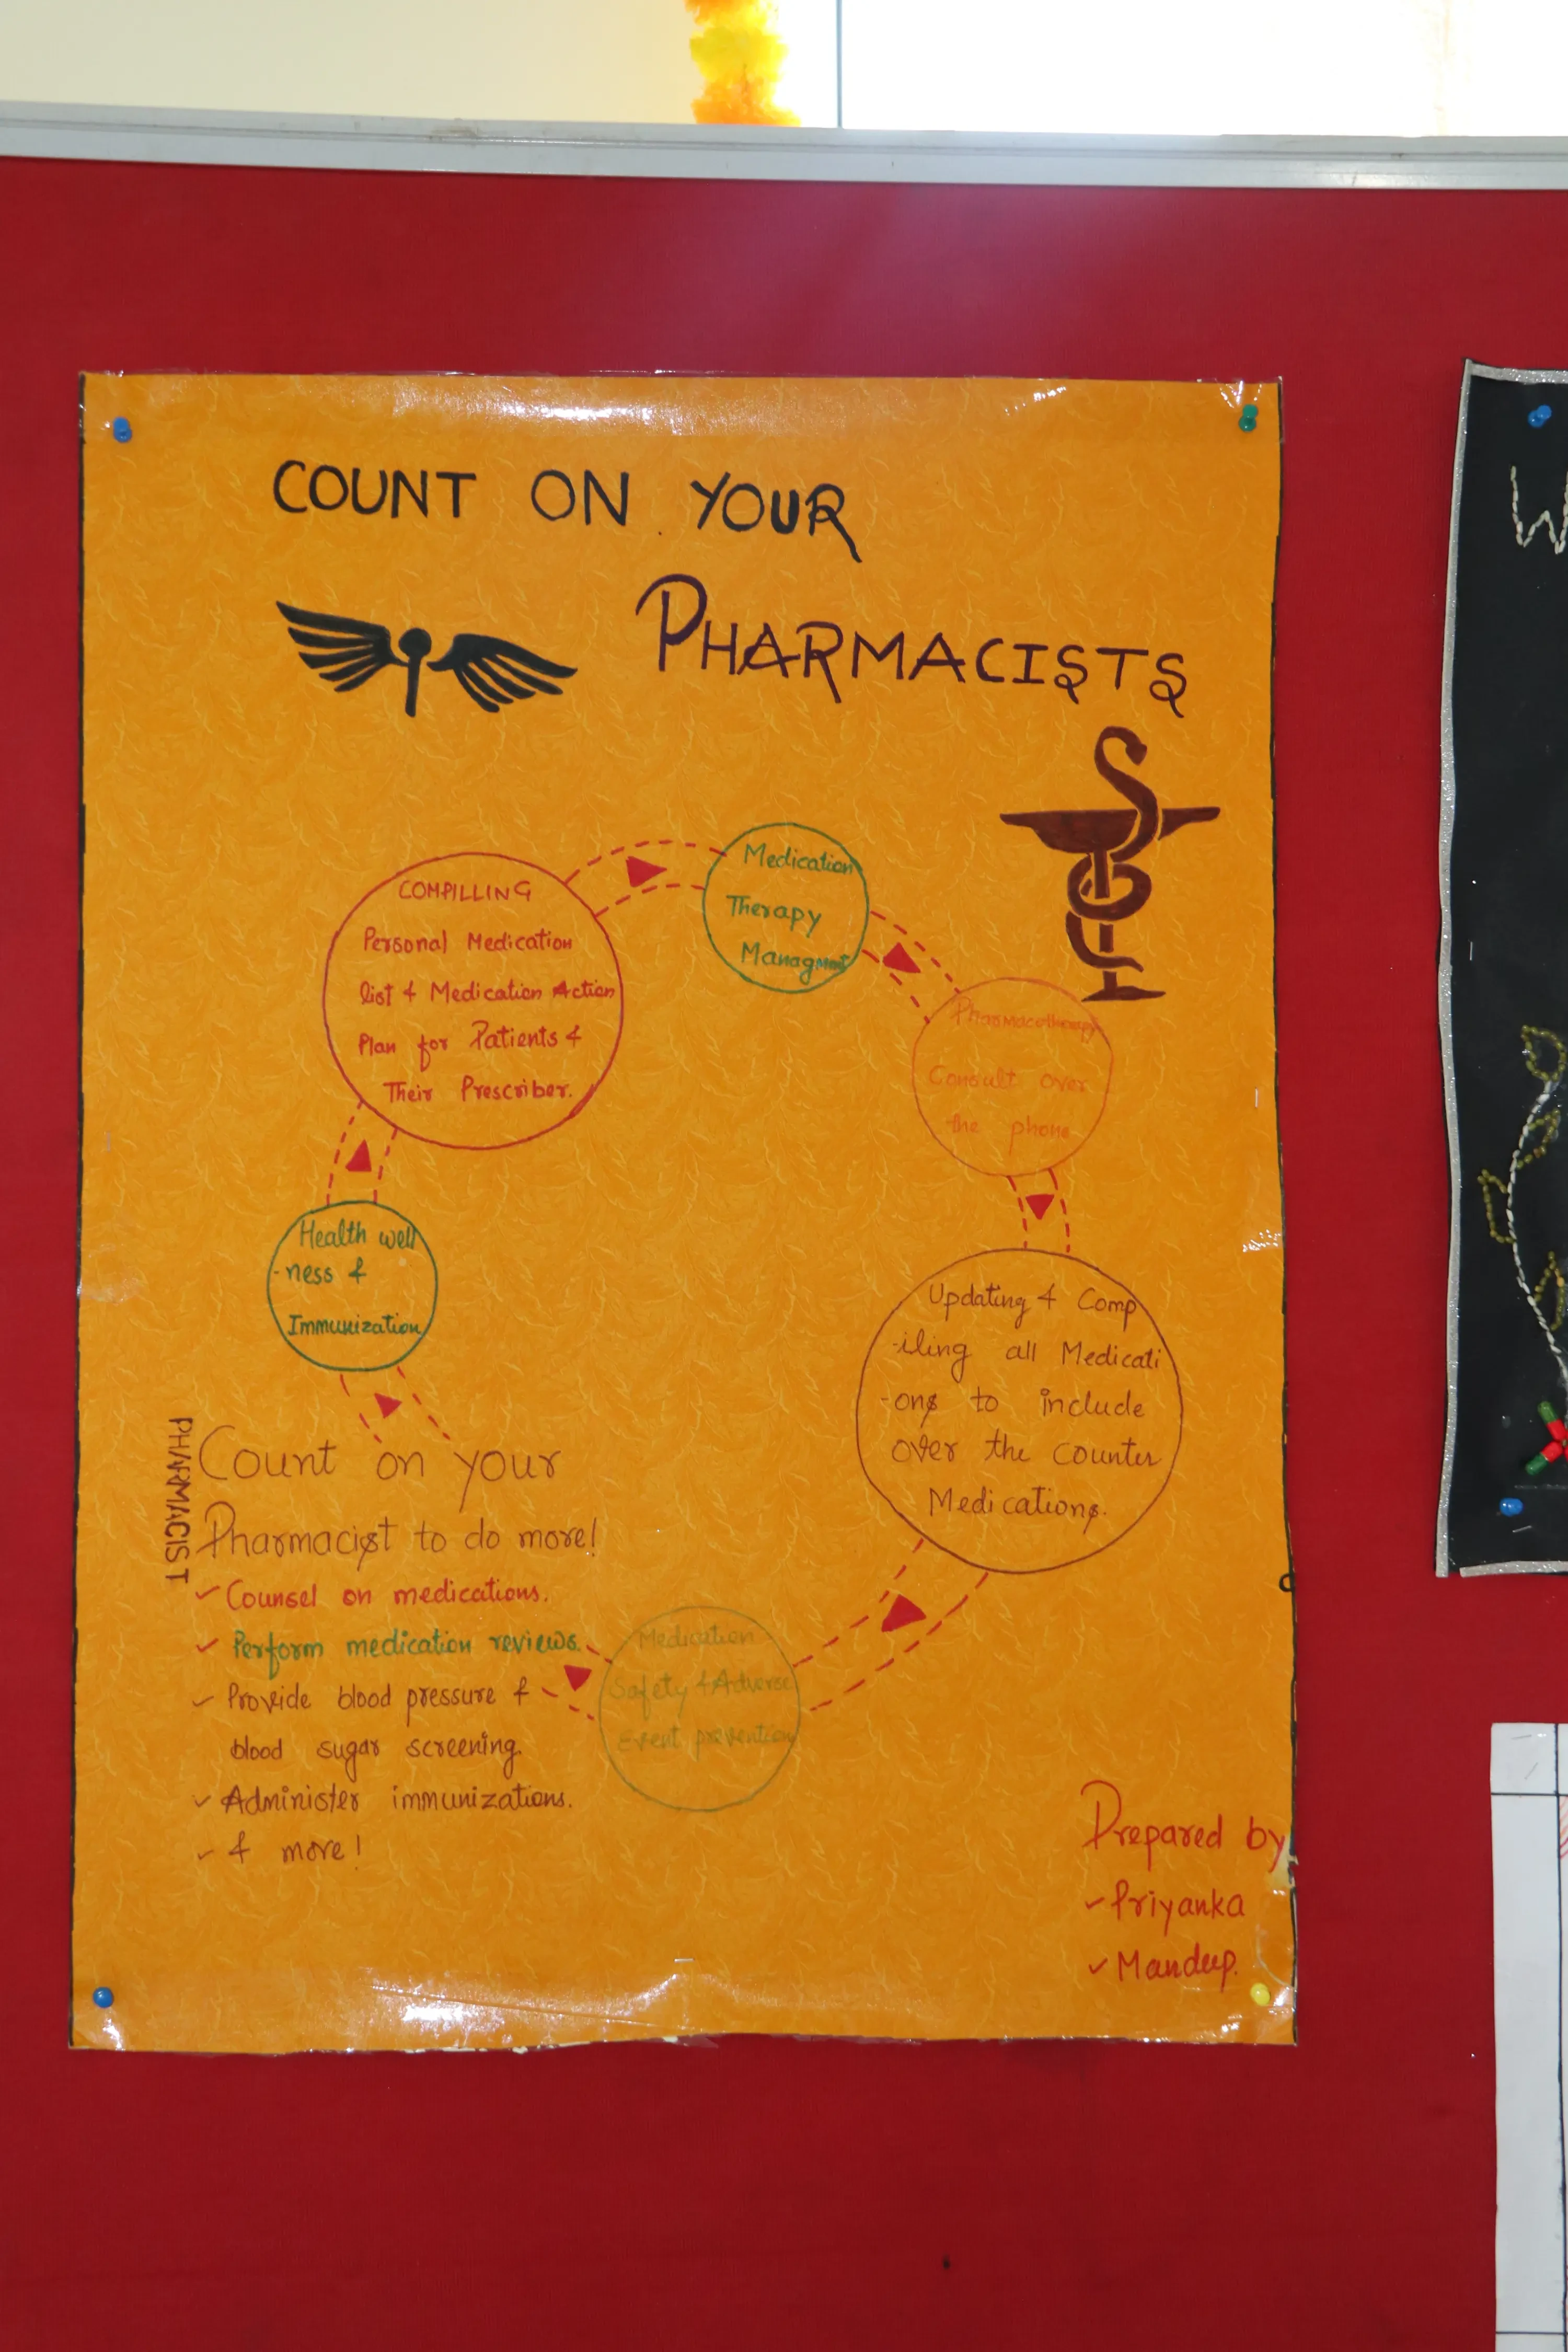 COUNT ON YOUR
PHARMACISTS
COMPILLING
Personal Medication
list & Medication Action
Plan for Patients &
Their Prescriber.
Medication
Therapy
Managment
Pharmacotherapy
Consult over
the phone
Updating & Comp
-iling all Medicati
-ons to include
over the counter
Medications.
Medication
Safety & Adverse
Event prevention
Health well
-ness &
Immunization
PHARMACIST
Count on your
Pharmacist to do more!
✓ Counsel on medications.
✓ Perform medication reviews.
✓ Provide blood pressure &
blood sugar screening.
✓ Administer immunizations.
✓ & more!
Prepared by
✓ Priyanka
✓ Mandeep.
W